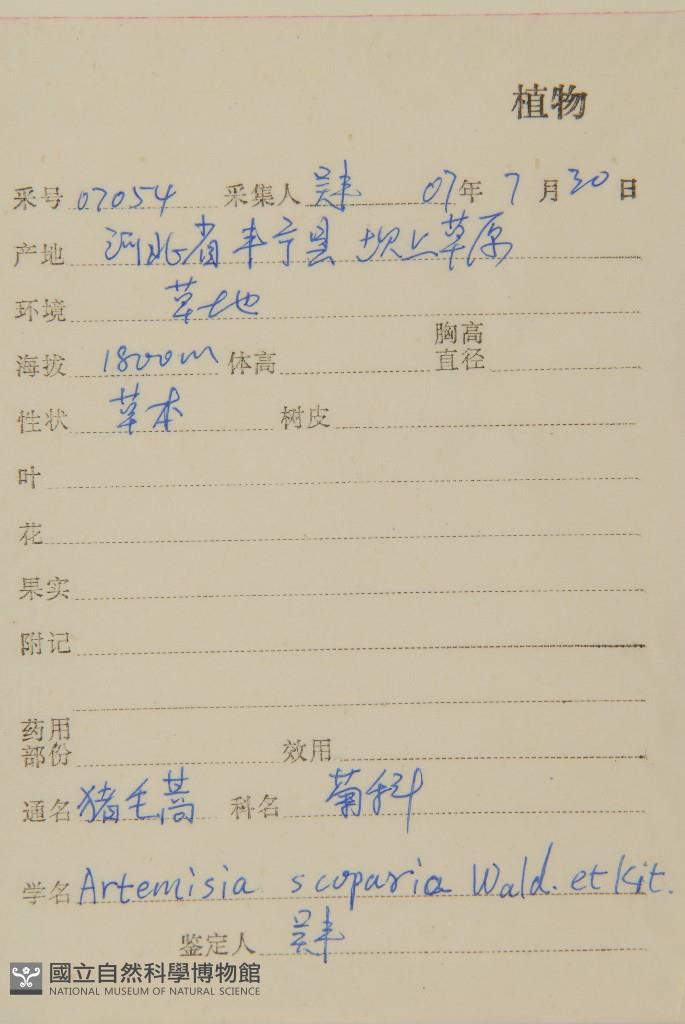 植物
采号 07054 采集人 吴丰 07年 7 月 30 日
产地 河北省丰宁县 坝上草原
环境 草地
海拔 1800m 体高 胸高直径
性状 草本 树皮
叶
花
果实
附记
药用部份 效用
通名 猪毛蒿 科名 菊科
学名 Artemisia scoparia Wald. et Kit.
鉴定人 吴丰
國立自然科學博物館
NATIONAL MUSEUM OF NATURAL SCIENCE